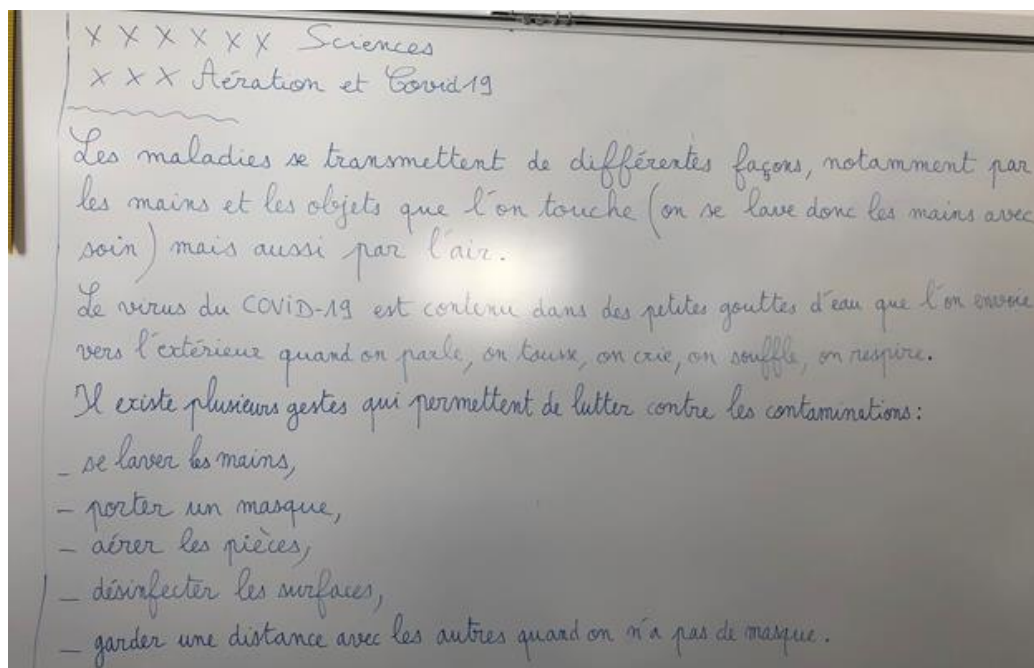 X X X X X X Sciences
X X X Aération et Covid 19
Les maladies se transmettent de différentes façons, notamment par
les mains et les objets que l'on touche (on se lave donc les mains avec
soin) mais aussi par l'air.
Le virus du COViD-19 est contenu dans des petites gouttes d'eau que l'on envoie
vers l'extérieur quand on parle, on tousse, on crie, on souffle, on respire.
Il existe plusieurs gestes qui permettent de lutter contre les contaminations :
_ se laver les mains,
- porter un masque,
- aérer les pièces,
_ désinfecter les surfaces,
_ garder une distance avec les autres quand on n'a pas de masque.